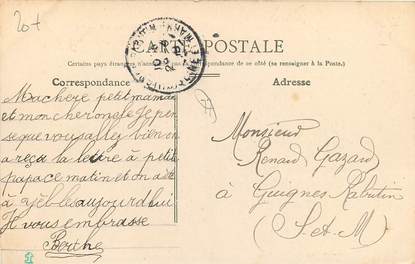 20+
CARTE POSTALE
Certains pays étrangers n'a dance de ce côté (se renseigner à la Poste).
Correspondance
Adresse
Ma chere petit maman
et mon cher oncle Je pen
se que vous allez bien on
a reçu la lettre à petit
papa ce matin et on a été
à Yèbles aujourd'hui
Je vous embrasse
Berthe
Monsieur
Renard Gazard
à Guignes Rabutin
(S-et-M)